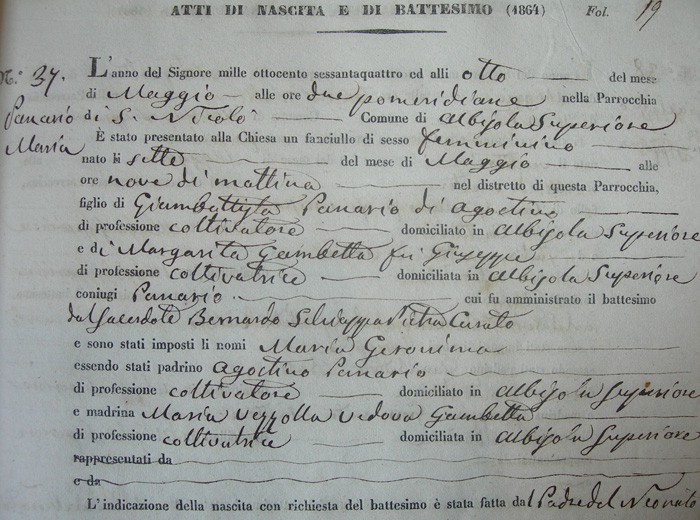 ATTI DI NASCITA E DI BATTESIMO (1864) Fol. 19
N.º 37.
Panario
Maria
L'anno del Signore mille ottocento sessantaquattro ed alli otto del mese
di Maggio alle ore due pomeridiane nella Parrocchia
di S. Nicolò Comune di Albisola Superiore
È stato presentato alla Chiesa un fanciullo di sesso femminino
nato li sette del mese di Maggio alle
ore nove di mattina nel distretto di questa Parrocchia,
figlio di Giambattista Panario di Agostino
di professione coltivatore domiciliato in Albisola Superiore
e di Margarita Gambetta fu Giuseppe
di professione coltivatrice domiciliata in Albisola Superiore
coniugi Panario. cui fu amministrato il battesimo
dal Sacerdote Bernardo Schiappapietra Curato
e sono stati imposti li nomi Maria Geronima
essendo stati padrino Agostino Panario
di professione coltivatore domiciliato in Albisola Superiore
e madrina Maria Vezzolla vedova Gambetta
di professione coltivatrice domiciliata in Albisola Superiore
rappresentati da
e da
L'indicazione della nascita con richiesta del battesimo è stata fatta dal Padre del Neonato